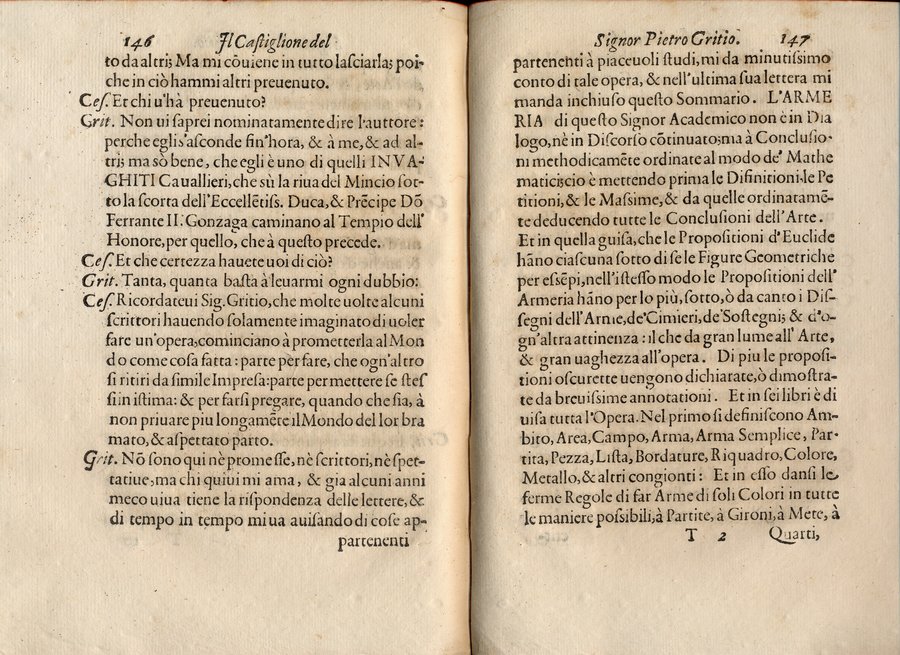 146 Il Castiglione del
to da altri; Ma mi cōuiene in tutto lasciarla; poi-
che in ciò hammi altri preuenuto.
Ces. Et chi u'hà preuenuto?
Grit. Non ui saprei nominatamente dire l'auttore:
perche egli s'asconde fin'hora, & à me, & ad al-
tri; ma sò bene, che egli è uno di quelli INVA-
GHITI Cauallieri, che sù la riua del Mincio sot-
to la scorta dell'Eccellētiss. Duca, & Prēcipe Dō
Ferrante II. Gonzaga caminano al Tempio dell'
Honore, per quello, che à questo precede.
Ces. Et che certezza hauete uoi di ciò?
Grit. Tanta, quanta bastà à leuarmi ogni dubbio:
Ces. Ricordateui Sig. Gritio, che molte uolte alcuni
scrittori hauendo solamente imaginato di uoler
fare un'opera, cominciano à prometterla al Mon
do come cosa fatta: parte pèr fare, che ogn'altro
si ritiri da simile Impresa: parte per mettere se stes
si in istima: & per farsi pregare, quando che sia, à
non priuare piu longamēte il Mondo del lor bra
mato, & aspettato parto.
Grit. Nō sono qui nè promesse, nè scrittori, nè spet-
tatiue, ma chi quiui mi ama, & gia alcuni anni
meco uiua tiene la rispondenza delle lettere, &
di tempo in tempo mi ua auisando di cose ap-
partenenti
Signor Pietro Gritio. 147
partenenti à piaceuoli studi, mi da minutissimo
conto di tale opera, & nell'ultima sua lettera mi
manda inchiuso questo Sommario. L'ARME
RIA di questo Signor Academico non è in Dia
logo, nè in Discorso cōtinuato; ma à Conclusio-
ni methodicamēte ordinate al modo de' Mathe
matici; cio è mettendo prima le Difinitioni, le Pe
titioni, & le Massime, & da quelle ordinatamē-
te deducendo tutte le Conclusioni dell'Arte.
Et in quella guisa, che le Propositioni d'Euclide
hāno ciascuna sotto di se le Figure Geometriche
per essēpi, nell'istesso modo le Propositioni dell'
Armeria hāno per lo più, sotto, ò da canto i Dis-
segni dell'Arme, de' Cimieri, de' Sostegni; & d'o-
gn'altra attinenza: il che da gran lume all'Arte,
& gran uaghezza all'opera. Di piu le proposi-
tioni oscurette uengono dichiarate, ò dimostra-
te da breuissime annotationi. Et in sei libri è di
uisa tutta l'Opera. Nel primo si definiscono Am-
bito, Area, Campo, Arma, Arma Semplice, Par-
tita, Pezza, Lista, Bordature, Riquadro, Colore,
Metallo, & altri congionti: Et in esso dansi le
ferme Regole di far Arme di soli Colori in tutte
le maniere possibili, à Partite, à Gironi, à Mete, à
T 2 Quarti,